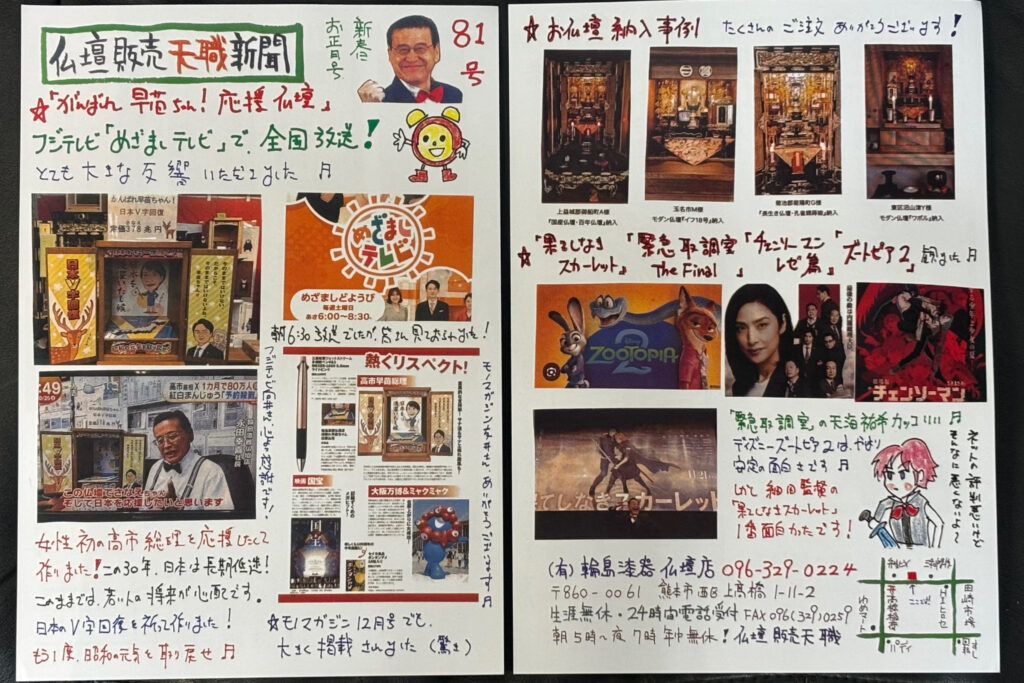 仏壇販売天職新聞
新春
お正月号
81号
☆「がんばれ 早苗ちゃん! 応援仏壇」
フジテレビ「めざましテレビ」で、全国放送!
とても大きな反響いただきました ♬
がんばれ早苗ちゃん!
日本V字回復
定価378兆円
日本V字回復
めざまし
テレビ
めざましどようび
毎週土曜日
あさ6:00~8:30
朝6:30放送でしたが、皆さん見ておられました!
:49
高市首相X 1カ月で80万人
紅白まんじゅう「予約殺到
この仏壇でさなえちゃん
そして日本をお直ししたいと思います
熱くリスペクト!
高市早苗総理
映画 国宝
大阪万博&ミャクミャク
女性初の高市総理を応援したくて
作りました!この30年、日本は長期低迷!
このままでは、若い人の将来が心配です。
日本のV字回復を祈って作りました!
もう1度、昭和の元気を取り戻せ ♬
☆モノマガジン12月号でも、
大きく掲載されました(驚き)
☆お仏壇納入事例 たくさんのご注文ありがとうございます!
上益城郡御船町A様
『国産仏壇・百年仏壇』納入
玉名市M様
モダン仏壇『イフ18号』納入
菊池郡菊陽町G様
『長生き仏壇・孔雀鏡蒔絵』納入
東区沼山津Y様
モダン仏壇『ワポル』納入
☆「果てしなきスカーレット」「緊急取調室 The Final」「チェンソーマン レゼ篇」「ズートピア2」観ました ♬
Disney
ZOOTOPIA
2
劇場版
チェンソーマン
11.21
果てしなきスカーレット
「緊急取調室」の天海祐希カッコいい ♬
ディズニーズートピア2は、やはり
安定の面白さです ♬
そして細田監督の
「果てしなきスカーレット」
1番面白かったです!
ネットの評判悪いけど
そんなに悪くないよ~
(有)輪島漆器仏壇店 096-329-0224
〒860-0061 熊本市西区上高橋1-11-2
生涯無休・24時間電話受付 FAX 096(329)0259
朝5時~夜7時 年中無休!仏壇販売天職
ここだよ
田崎市場
ゆめマート